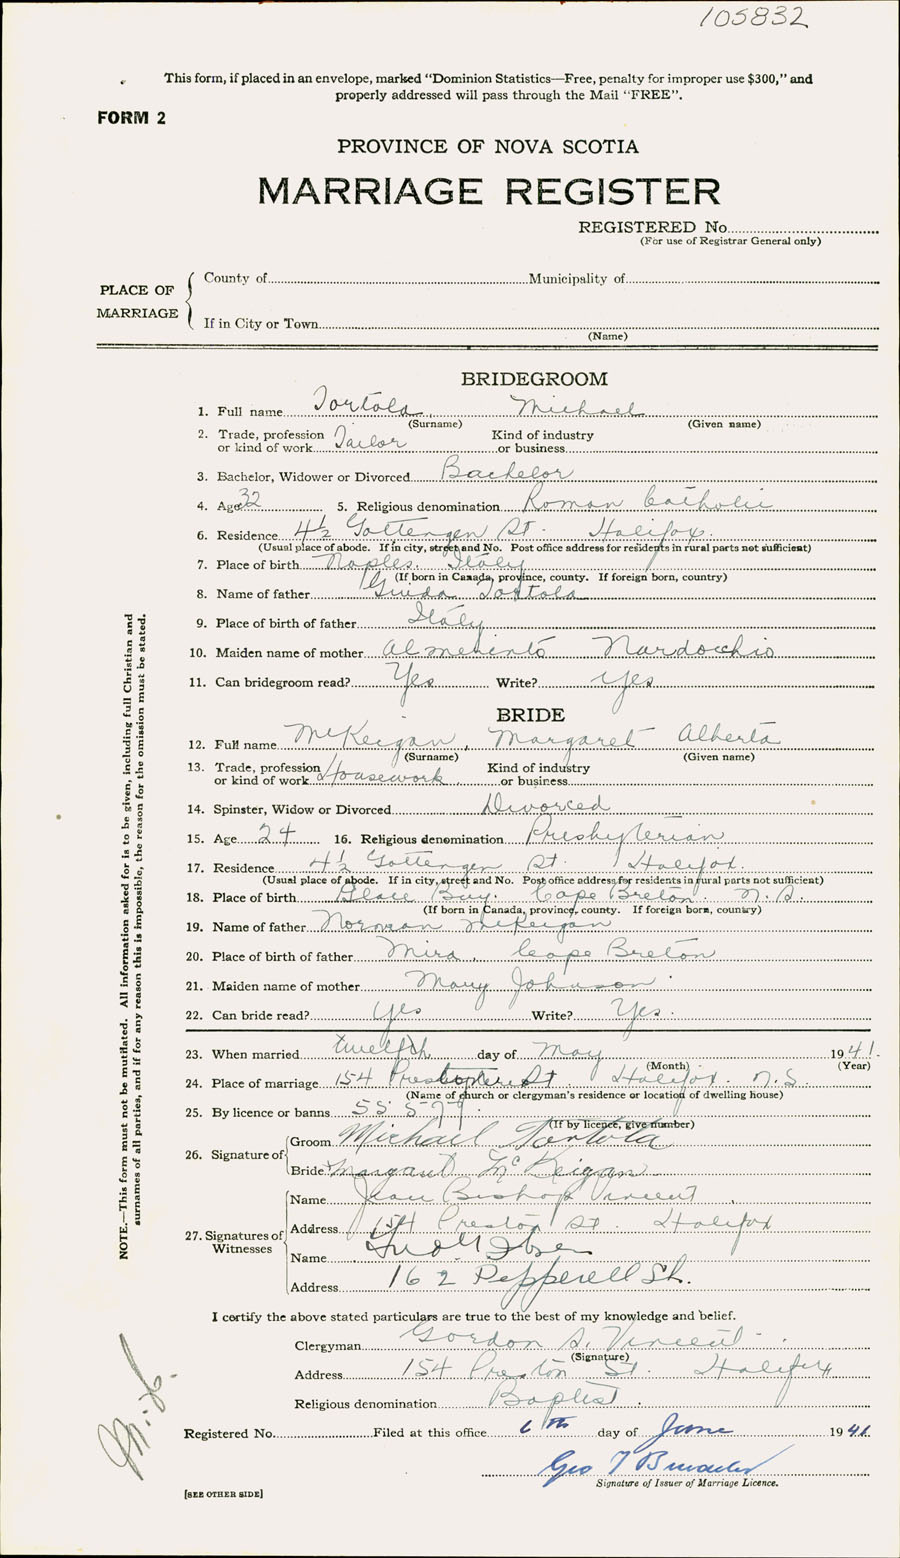 105832
This form, if placed in an envelope, marked "Dominion Statistics—Free, penalty for improper use $300," and
properly addressed will pass through the Mail "FREE".
FORM 2
PROVINCE OF NOVA SCOTIA
MARRIAGE REGISTER
REGISTERED No.
(For use of Registrar General only)
PLACE OF MARRIAGE
County of Municipality of
If in City or Town
(Name)
BRIDEGROOM
1. Full name Tortola, Michael
(Surname) (Given name)
2. Trade, profession or kind of work Tailor Kind of industry or business
3. Bachelor, Widower or Divorced Bachelor
4. Age 32 5. Religious denomination Roman Catholic
6. Residence 4½ Gottengen St. Halifax.
(Usual place of abode. If in city, street and No. Post office address for residents in rural parts not sufficient)
7. Place of birth Naples. Italy
(If born in Canada, province, county. If foreign born, country)
8. Name of father Guida Tortola
9. Place of birth of father Italy
10. Maiden name of mother Nardocchio
11. Can bridegroom read? Yes Write? yes
BRIDE
12. Full name McKeigan, Margaret Alberta
(Surname) (Given name)
13. Trade, profession or kind of work Housework. Kind of industry or business
14. Spinster, Widow or Divorced Divorced
15. Age 24 16. Religious denomination Presbyterian
17. Residence 4½ Gottengen St. Halifax.
(Usual place of abode. If in city, street and No. Post office address for residents in rural parts not sufficient)
18. Place of birth Glace Bay. Cape Breton. N.S.
(If born in Canada, province, county. If foreign born, country)
19. Name of father Norman McKeigan
20. Place of birth of father Mira, Cape Breton
21. Maiden name of mother Mary Johnson
22. Can bride read? Yes Write? Yes.
23. When married twelfth day of May 1941.
(Month) (Year)
24. Place of marriage 154 St. Halifax. N.S.
(Name of church or clergyman's residence or location of dwelling house)
25. By licence or banns 55 577.
(If by licence, give number)
26. Signature of
Groom Michael Tortola
Bride Margaret McKeigan
27. Signatures of Witnesses
Name Jean Bishop Vincent
Address 154 Preston St. Halifax
Name
Address 162 Pepperell St.
I certify the above stated particulars are true to the best of my knowledge and belief.
Clergyman Gordon S. Vincent
(Signature)
Address 154 Preston St. Halifax
Religious denomination Baptist.
Registered No. Filed at this office 6th day of June 1941.
Geo T
Signature of Issuer of Marriage Licence.
[SEE OTHER SIDE]
NOTE.—This form must not be mutilated. All information asked for is to be given, including full Christian and
surnames of all parties, and if for any reason this is impossible, the reason for the omission must be stated.